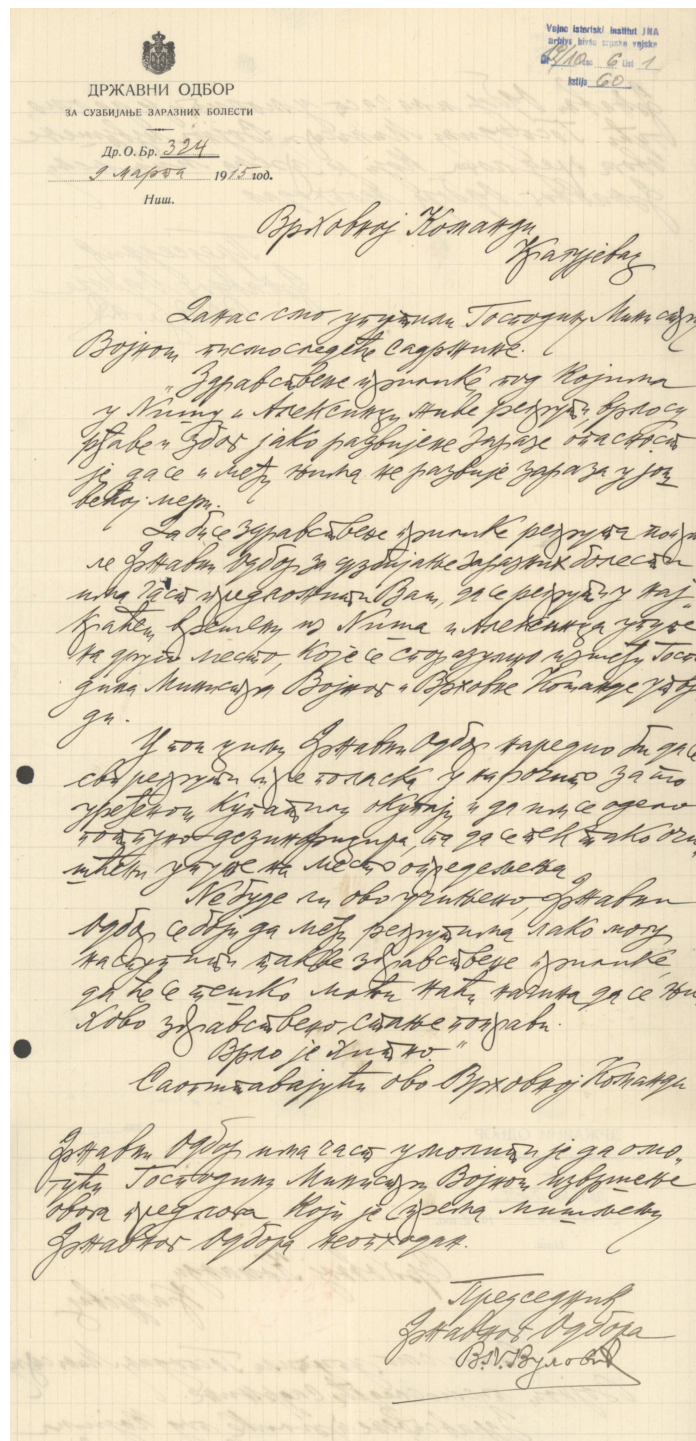 Vojno istoriski institut JNA
arhiv bivše srpske vojske
6 1
60
ДРЖАВНИ ОДБОР
ЗА СУЗБИЈАЊЕ ЗАРАЗНИХ БОЛЕСТИ
Др. О. Бр. 324
9 Марта 1915 год.
Ниш.
Врховној Команди
Крагујевац
Данас смо упутили Господину Министру
Војном писмо следеће садржине.
„Здравствене прилике, под којима
у Нишу и Алексинцу живе регрути, врло су
рђаве и због јако развијене заразе опасност
је да се и међу њима не развије зараза у још
већој мери.
Да би се здравствене прилике регрута поправи
ле Државни Одбор за сузбијање заразних болести
има част предложити Вам, да се регрути у нај
краћем времену из Ниша и Алексинца упуте
на друго место, које се споразумно између Госпо
дина Министра Војног и Врховне Команде утвр
ди.
У том циљу Државни Одбор наредио би да се
сви регрути пре поласка у нарочито за то
уређеном купатилу окупају и да им се одело
потпуно дезинфицира, па да се тек тако очи
шћени упуте на место опредељења.
Не буде ли ово учињено, Државни
Одбор се боји да међу регрутима лако могу
наступити такве здравствене прилике,
да ће се тешко моћи наћи начина да се њи
хово здравствено стање поправи.
Врло је хитно.“
Саопштавајући ово Врховној Команди
Државни Одбор има част умолити је да омо-
гући Господину Министру Војном извршење
овога предлога који је према мишљењу
Државног Одбора неопходан.
Председник
Државног Одбора
В. М. Вуловић